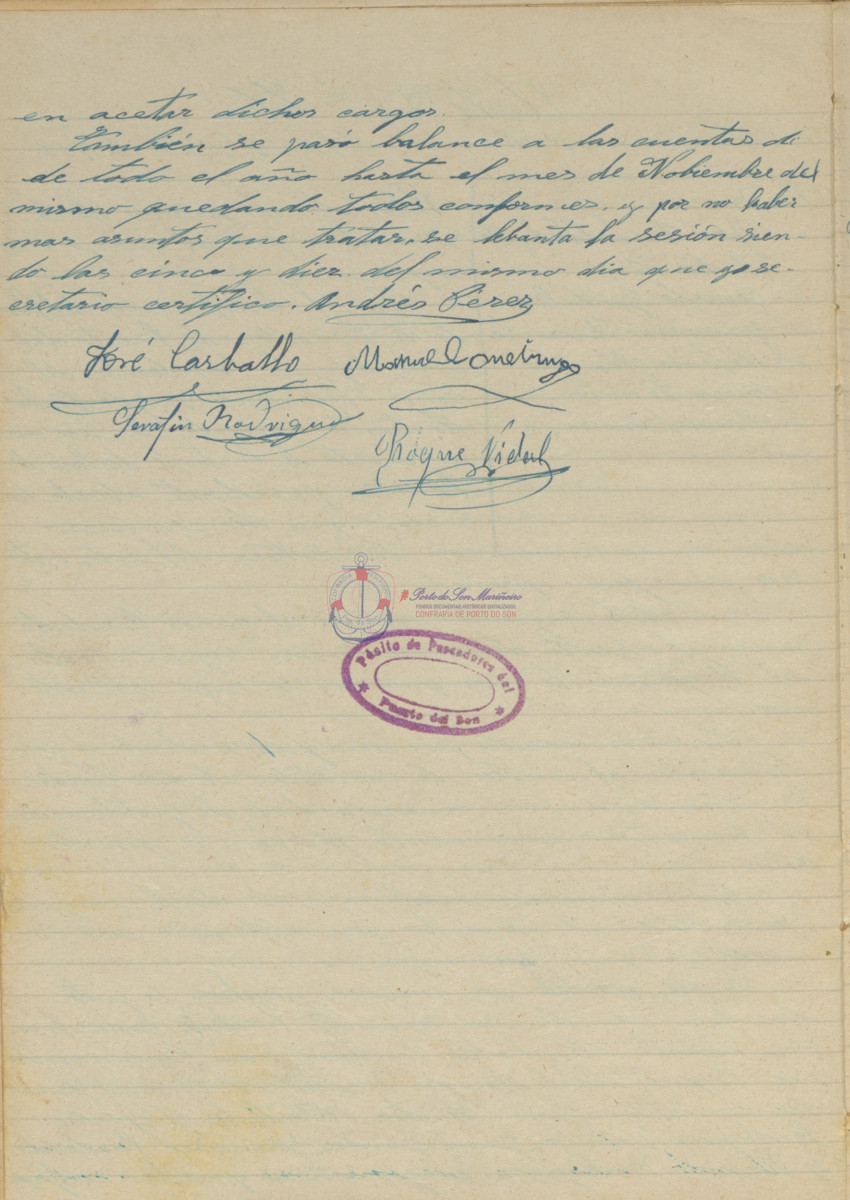 en acetar dichos cargos.
También se pasó balance a las cuentas de
de todo el año hasta el mes de Nobiembre del
mismo quedando todos conformes. y por no haber
mas asuntos que tratar, se lebanta la sesión sien-
do las cinco y diez del mismo dia que yo se-
cretario certifico. Andrés Pérez
José Carballo Manuel
Serafin Rodriguez
Roque Vidal
#Porto do Son Mariñeiro
FONDOS DOCUMENTAIS HISTÓRICOS DIXITALIZADOS
CONFRARÍA DE PORTO DO SON
Pósito de Pescadores del
Puerto del Son